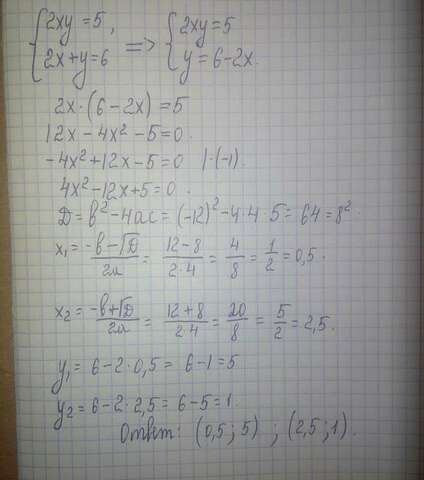 {2xy = 5, => {2xy = 5
{2x + y = 6 {y = 6 - 2x.
2x · (6 - 2x) = 5
12x - 4x² - 5 = 0.
-4x² + 12x - 5 = 0 | · (-1).
4x² - 12x + 5 = 0.
D = b² - 4ac = (-12)² - 4·4·5 = 64 = 8².
x₁ = (-b - √D)/2a = (12 - 8)/(2·4) = 4/8 = 1/2 = 0,5.
x₂ = (-b + √D)/2a = (12 + 8)/(2·4) = 20/8 = 5/2 = 2,5.
y₁ = 6 - 2·0,5 = 6 - 1 = 5
y₂ = 6 - 2·2,5 = 6 - 5 = 1.
Ответ: (0,5; 5) ; (2,5; 1).